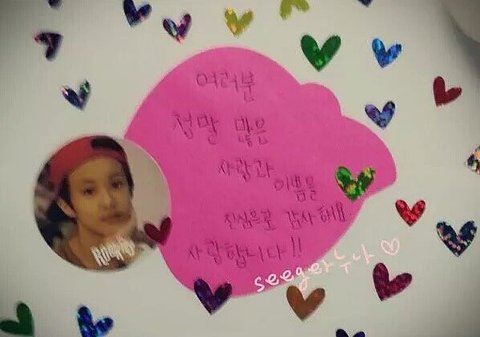 여러분
정말 많은
사랑과
이쁨을
진심으로 감사해요
사랑합니다!!
seeger누나♡